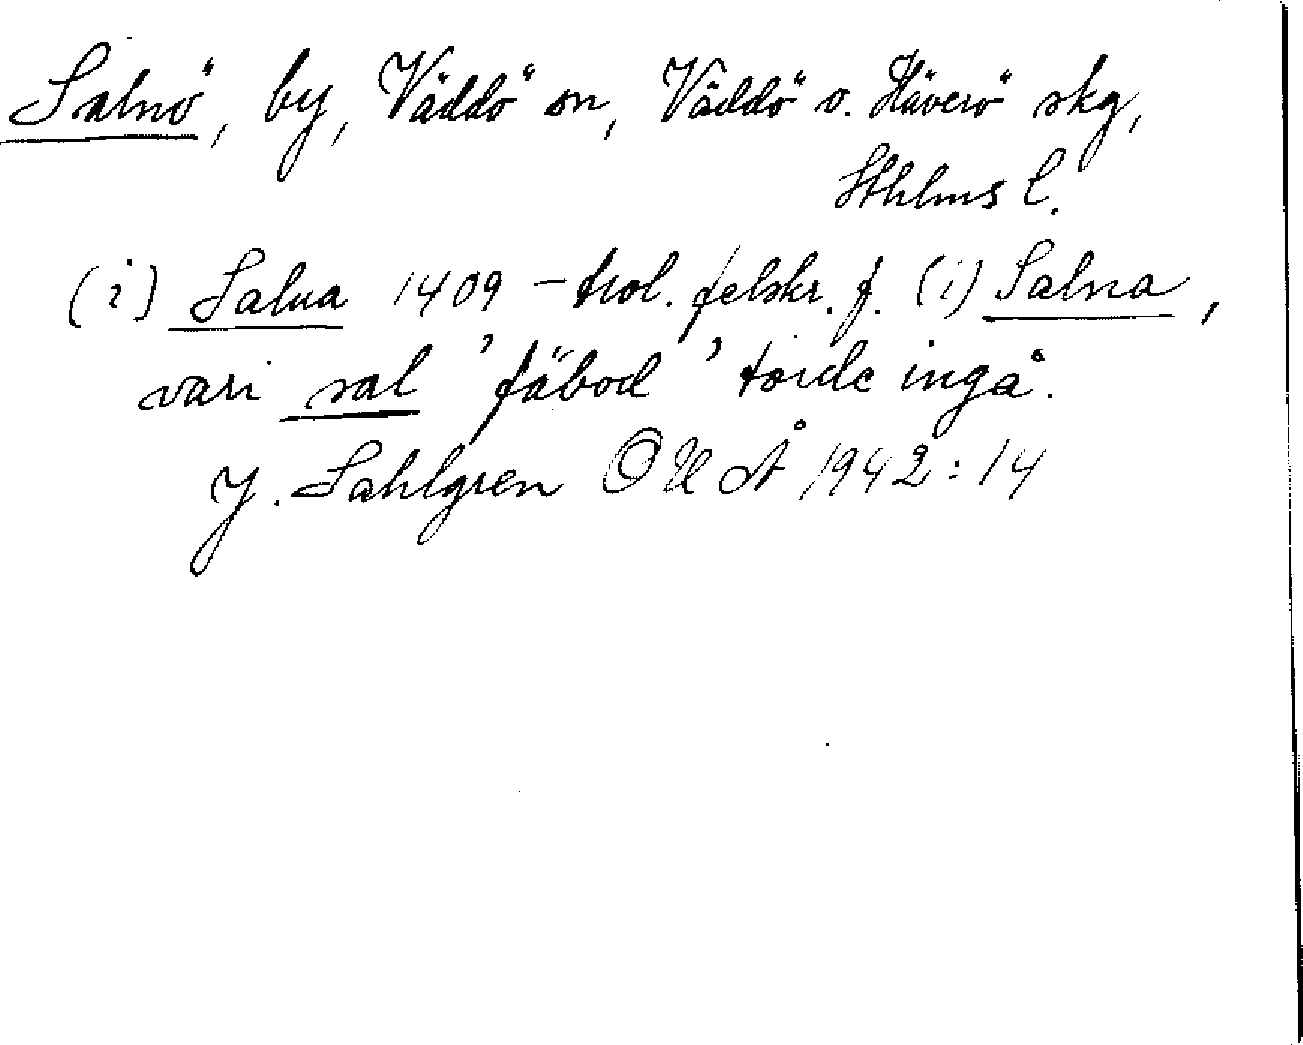 Salnö, by, Väddö sn, Väddö o. Häverö skg,
Sthlms l.
(i) Salua 1409 – trol. felskr. f. (i) Salna,
vari sal 'fäbod' torde ingå.
J. Sahlgren OUÅ 1942:14